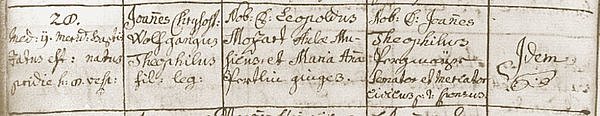 28.
med: ij: merid: baptiz
zatus est: natus
pridie h: 8: vesp:
Joannes Chrysost:
Wolfgangus
Theophilus
fil: leg:
Nob: D: Leopoldus
Mozart Aulæ Mu-
sicus, et Maria Anna
Pertlin giuges.
Nob: D: Joannes
Theophilus
Pergmayr
Senator et Mercator
civicus p: t: sponsus
Idem